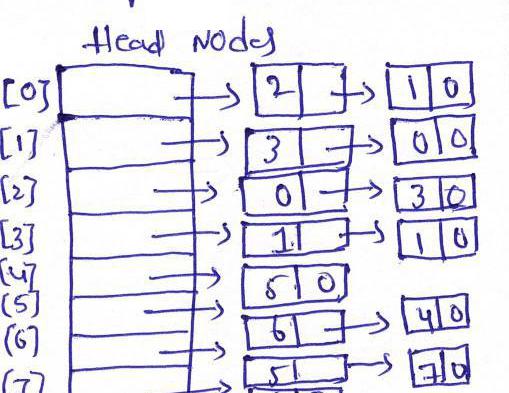 Head Nodes
[0] 2 1 0
[1] 3 0 0
[2] 0 3 0
[3] 1 1 0
[4] 5 0
[5] 6 4 0
[6] 5 7 0
[7]